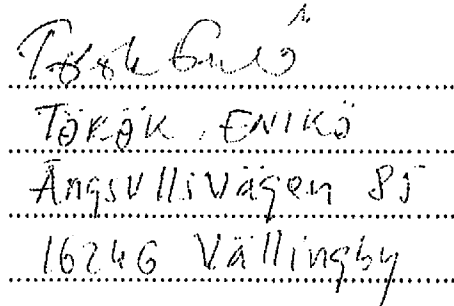 Török Enikő
TÖRÖK ENIKŐ
Ängsullsvägen 85
16246 Vällingby